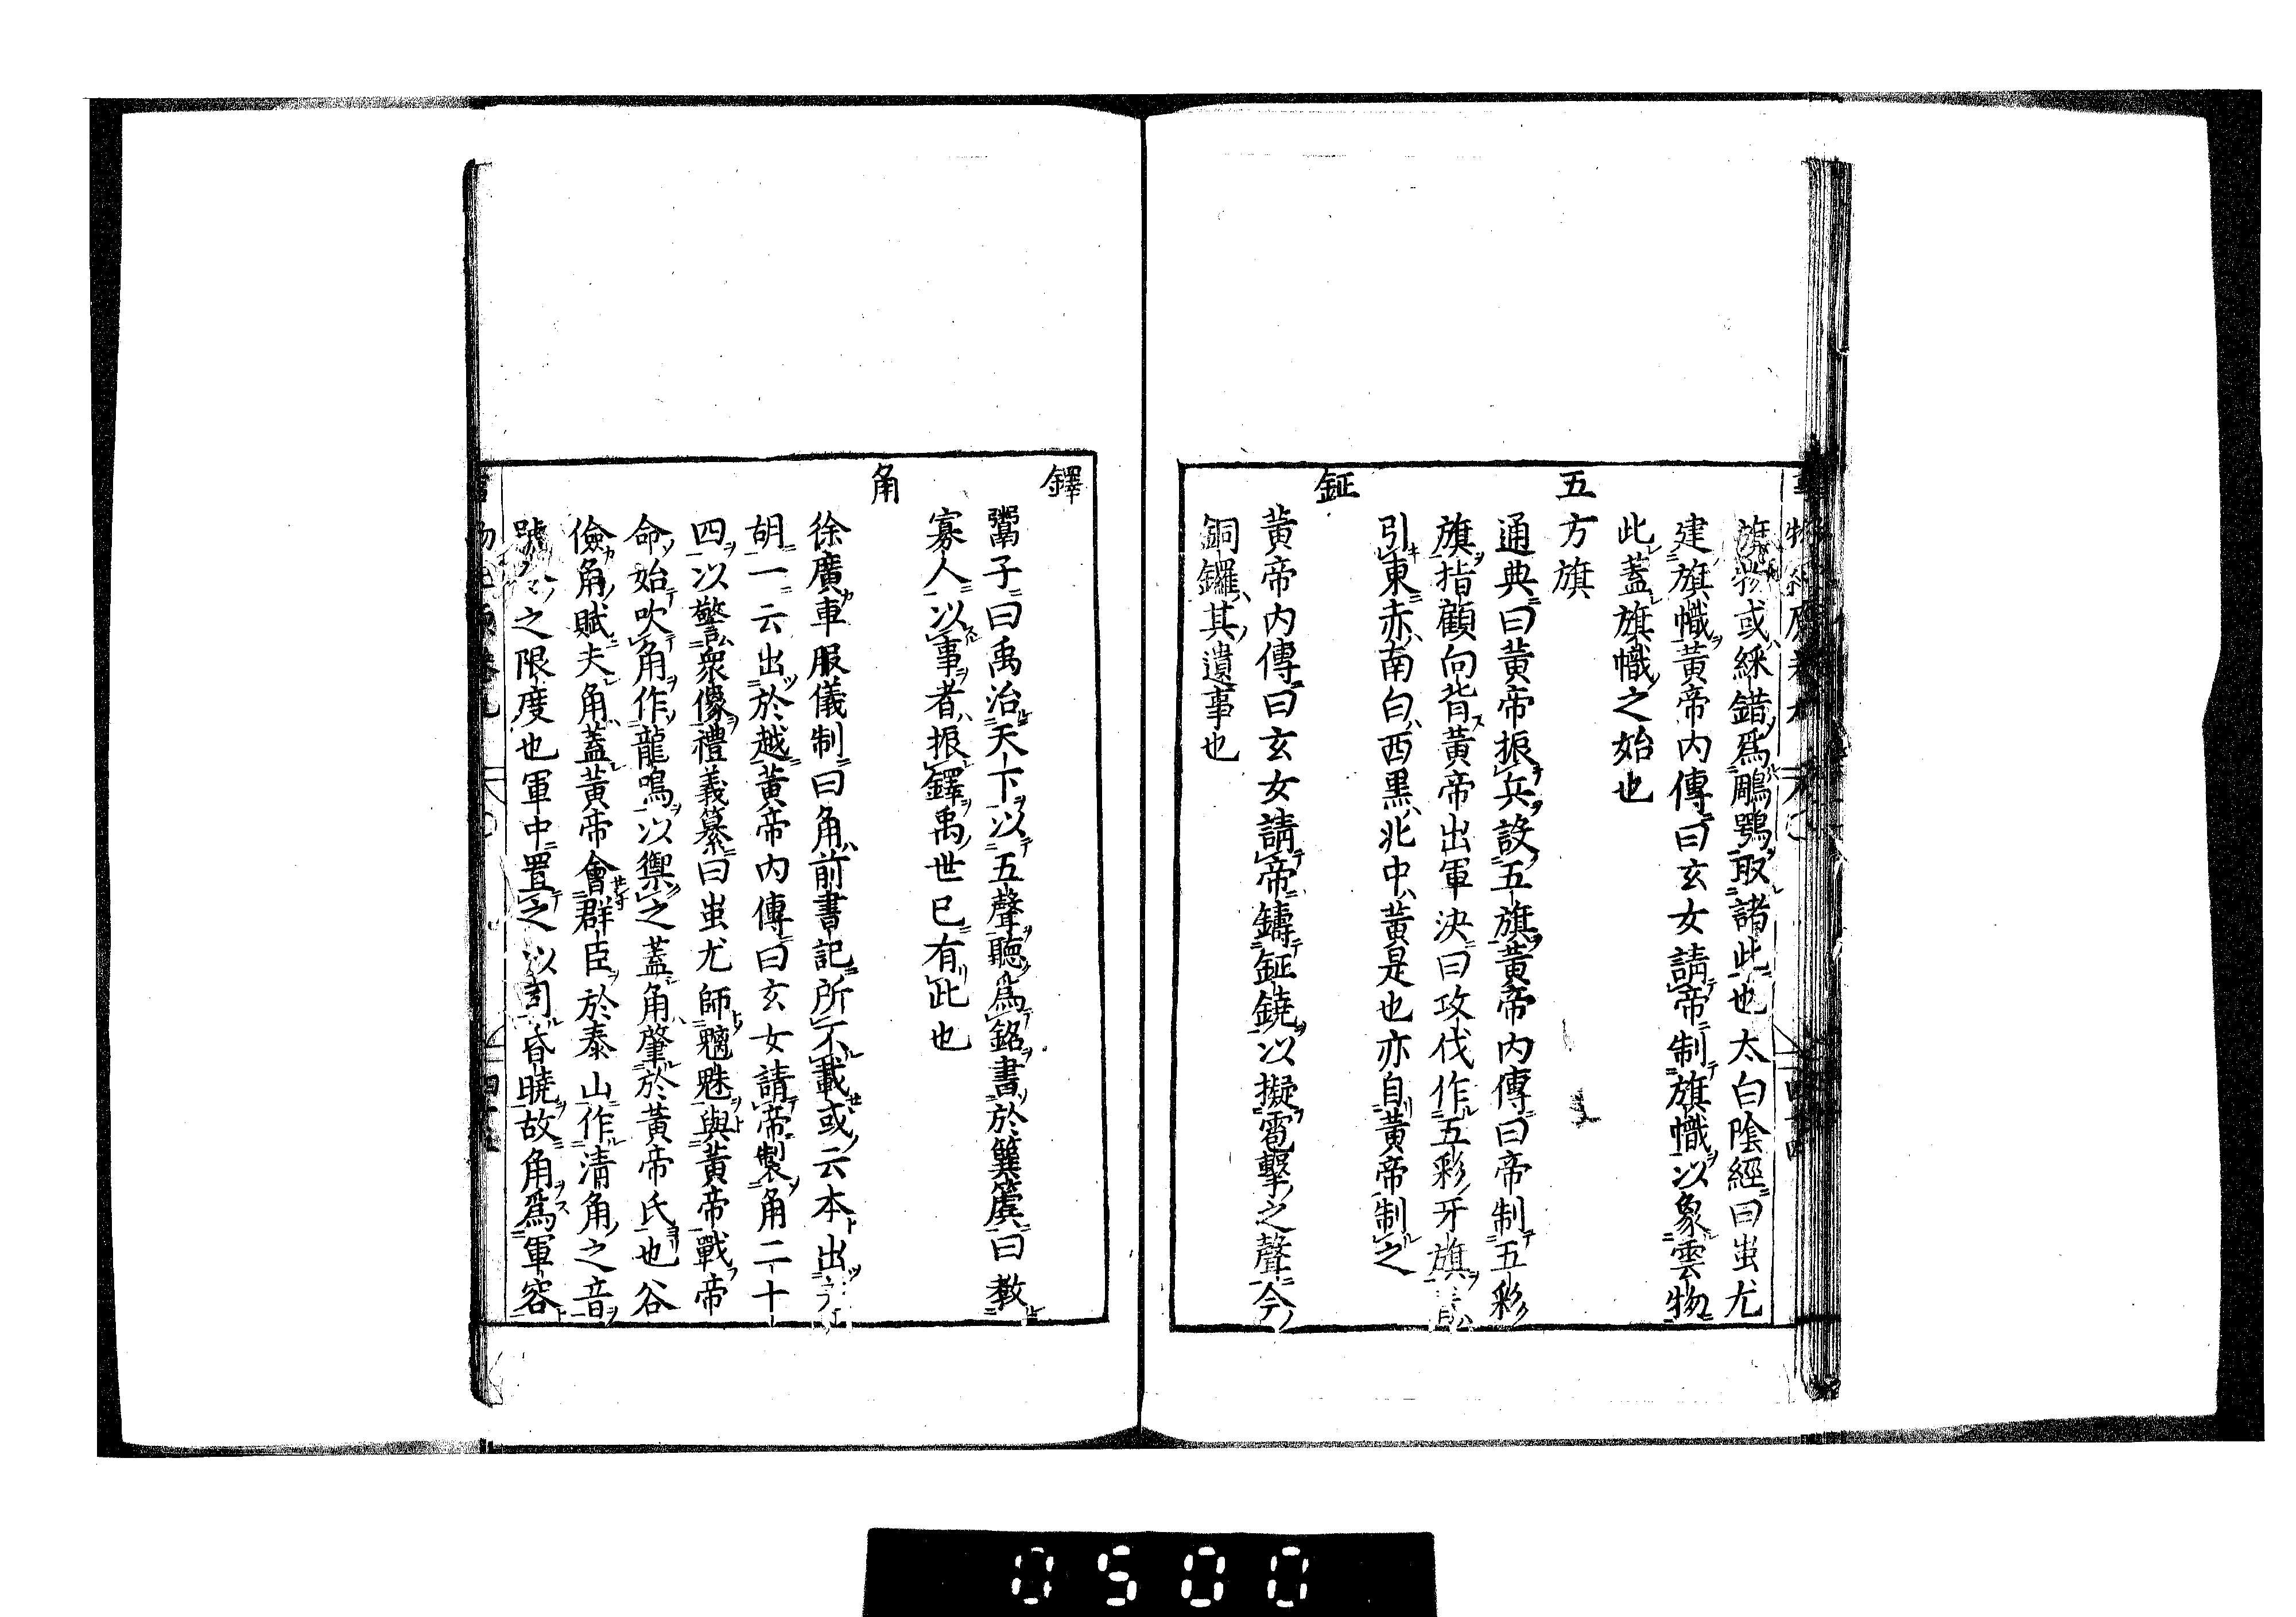 旗物或綵錯爲鵰鶚取諸此也太白陰經曰蚩尤
建旗幟黃帝內傳曰玄女請帝制旗幟以象雲物
此蓋旗幟之始也
五方旗
通典曰黃帝振兵設五旗黃帝內傳曰帝制五彩
旗指顧向背黃帝出軍決曰攻伐作五彩牙旗青
引東赤南白西黑北中黃是也亦自黃帝制之
鉦
黃帝內傳曰玄女請帝鑄鉦鐃以擬雹擊之聲今
銅鑼其遺事也
鐸
鬻子曰禹治天下以五聲聽爲銘書於簨簴曰教
寡人以事者振鐸禹世已有此也
角
徐廣車服儀制曰角前書記所不載或云本出
胡一云出於越黃帝內傳曰玄女請帝製角二十
四以警衆像禮義纂曰蚩尤師魑魅與黃帝戰帝
命始吹角作龍鳴以禦之蓋角肇於黃帝氏也谷
儉角賦夫角蓋黃帝會群臣於泰山作清角之音
號之限度也軍中置之以司昏曉故角爲軍容
0500